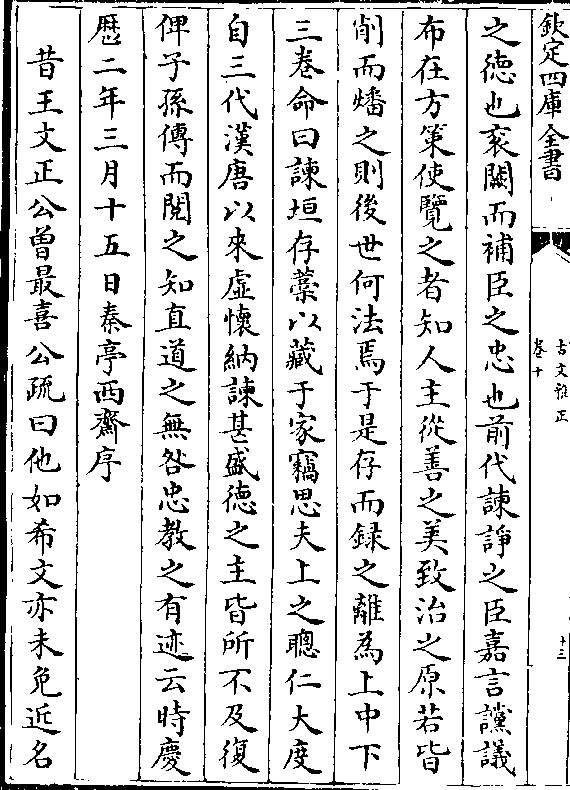 欽定四庫全書
古文雅正
卷十
十三
之徳也衮闕而補臣之忠也前代諫諍之臣嘉言讜議
布在方策使覽之者知人主從善之美致治之原若皆
削而燔之則後世何法焉于是存而録之離為上中下
三巻命曰諫垣存藁以藏于家竊思夫上之聰仁大度
自三代漢唐以來虛懷納諫甚盛德之主皆所不及復
俾子孫傳而閲之知直道之無咎忠教之有迹云時慶
厯二年三月十五日秦亭西齋序
昔王文正公曽最喜公疏曰他如希文亦未免近名